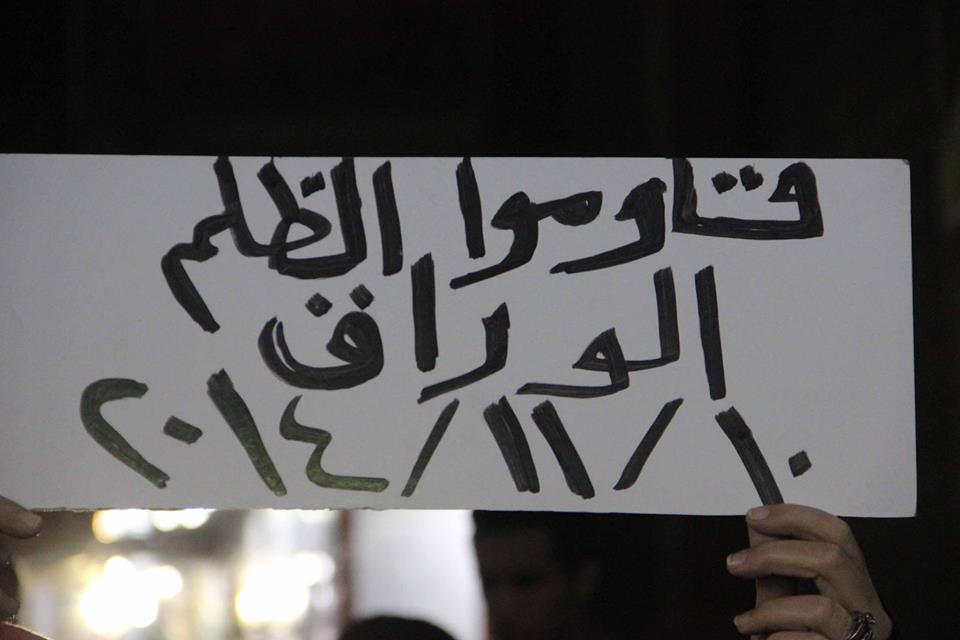 قاوموا الظلم
الوراق
١٠/١١/٢٠١٤